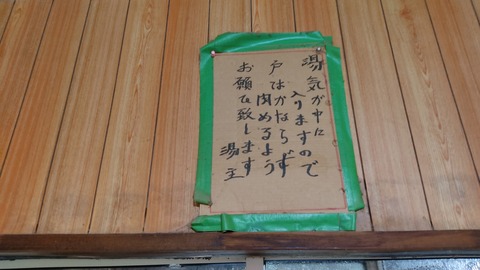 湯気が中に
入りますので
戸はかならず
閉めるよう
お願い致します
湯主